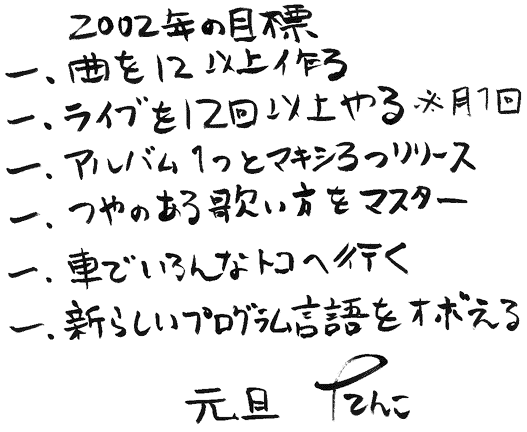 2002年の目標
一、曲を12以上作る
一、ライブを12回以上やる ※月1回
一、アルバム1つとマキシ3つリリース
一、つやのある歌い方をマスター
一、車でいろんなトコへ行く
一、新らしいプログラム言語をオボえる
元旦 てんこ